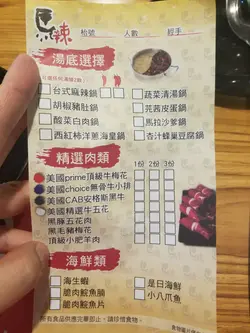 辣
枱號 人數 經手
湯底選擇
台式麻辣鍋
蔬菜清湯鍋
胡椒豬肚鍋
芫茜皮蛋鍋
酸菜白肉鍋
馬拉沙爹鍋
西紅柿洋蔥海皇鍋
杏汁蜂巢豆腐鍋
精選肉類
1份 2份 3份
美國prime頂級牛梅花
美國choice無骨牛小排
美國CAB安格斯黑牛
美國精選牛五花
黑豚五花肉
黑毛豬梅花
頂級小肥羊肉
海鮮類
海生蝦
是日海鮮
脆肉鯇魚腩
小八爪魚
脆肉鯇魚片
所有食品供應完畢即止，請珍惜食物。